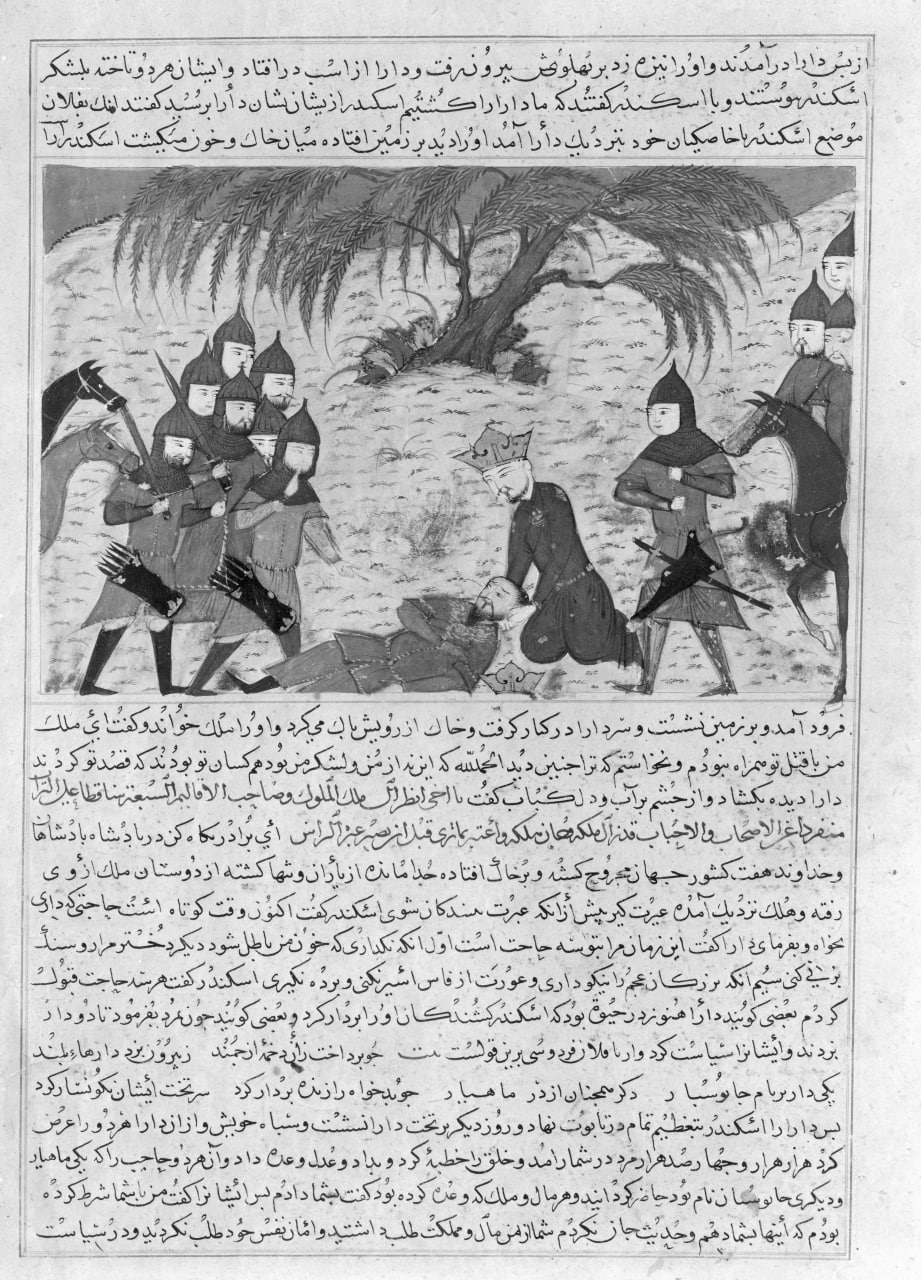 از پس دارا در آمدند و او را نیزه زد بر پهلویش بیرون رفت و دارا از اسب در افتاد و ایشان هردو تاختند بلشکر
اسکندر پیوستند و با اسکندر کفتند که ما دارا را کشتیم اسکندر از یشان نشان دارا برسید کفتند اینک بفلان
موضع اسکندر با خاصکیان خود نزدیك دارا آمد او را دید بر زمین افتاده میان خاك و خون میکشت اسکندر
فرود آمد و بر زمین نشست و سر دارا در کنار کرفت و خاك از رویش باك می کرد و او را ملك خواند و کفت ای ملك
من با قتل تو همراه نبودم و نخواستم که ترا جنین دید الحمدلله که این نه از من و لشکر من بود هم کسان تو بودند که قصد تو کردند
دارا دیده بکشاد و از جشم بر آب و دل کباب کفت یا اخی انظر الی ملك الملوك و صاحب الاقالیم السبعة
ای برادر نکاه کن در باذشاه باذشاهان
خداوند هفت کشور جهان مجروح کشته و بر خاك افتاده جدا مانده از یاران و تنها کشته از دوستان ملك از وی
رفته و هلاك نزدیك آمده عبرت کیر بیش از انکه عبرت بینندکان شوی اسکندر کفت اکنون وقت کوتاه است حاجتی که داری
بخواه و بفرمای دارا کفت این زمان مرا بتو سه حاجت است اول انکه نکذاری که خون من باطل شود دیکر دختر مرا روشنك
بزنی کنی سیم انکه بزرکان عجم را نیکو داری و عورت از فارس اسیر نکنی و برده نکیری اسکندر کفت هر سه حاجت قبول
کردم بعضی کویند دارا هنوز در حیوة بود که اسکندر کشندکان او را بردار کرد و بعضی کویند جون بمرد بفرمود تا دو دار
بزدند و ایشانرا سیاست کرد و از فردوسی برین قولست بیت جو برداخت زان دخمهٔ ارجمند ز بیرون بزد دارهاء بلند
یکی دار بر نام جانوسیار دکر همجنان از در ماهیار دو بدخواه را زنده بردار کرد سر تخت ایشان نکونسار کرد
بس دارا را اسکندر بتعظیم تمام در تابوت نهاد و روز دیکر بر تخت دارا نشست و سباه خویش و از ان دارا هردو را عرض
کرد هزار هزار و جهار صد هزار مرد در شمار آمد و خلق را خطبه کرد و بداد و عدل وعده داد و آن هردو حاجب را که یکی ماهیار
و دیکری جانوسیار نام بود حاضر کردانید و هر مال و ملك که وعده کرده بود کفت بشما دادم بس ایشانرا کفت من با شما شرط کرده
بودم که اینها بشما دهم و حدیث جان نکردم شما از من مال و مملکت طلب داشتید و امان نفس خود طلب نکردید و در سیاست